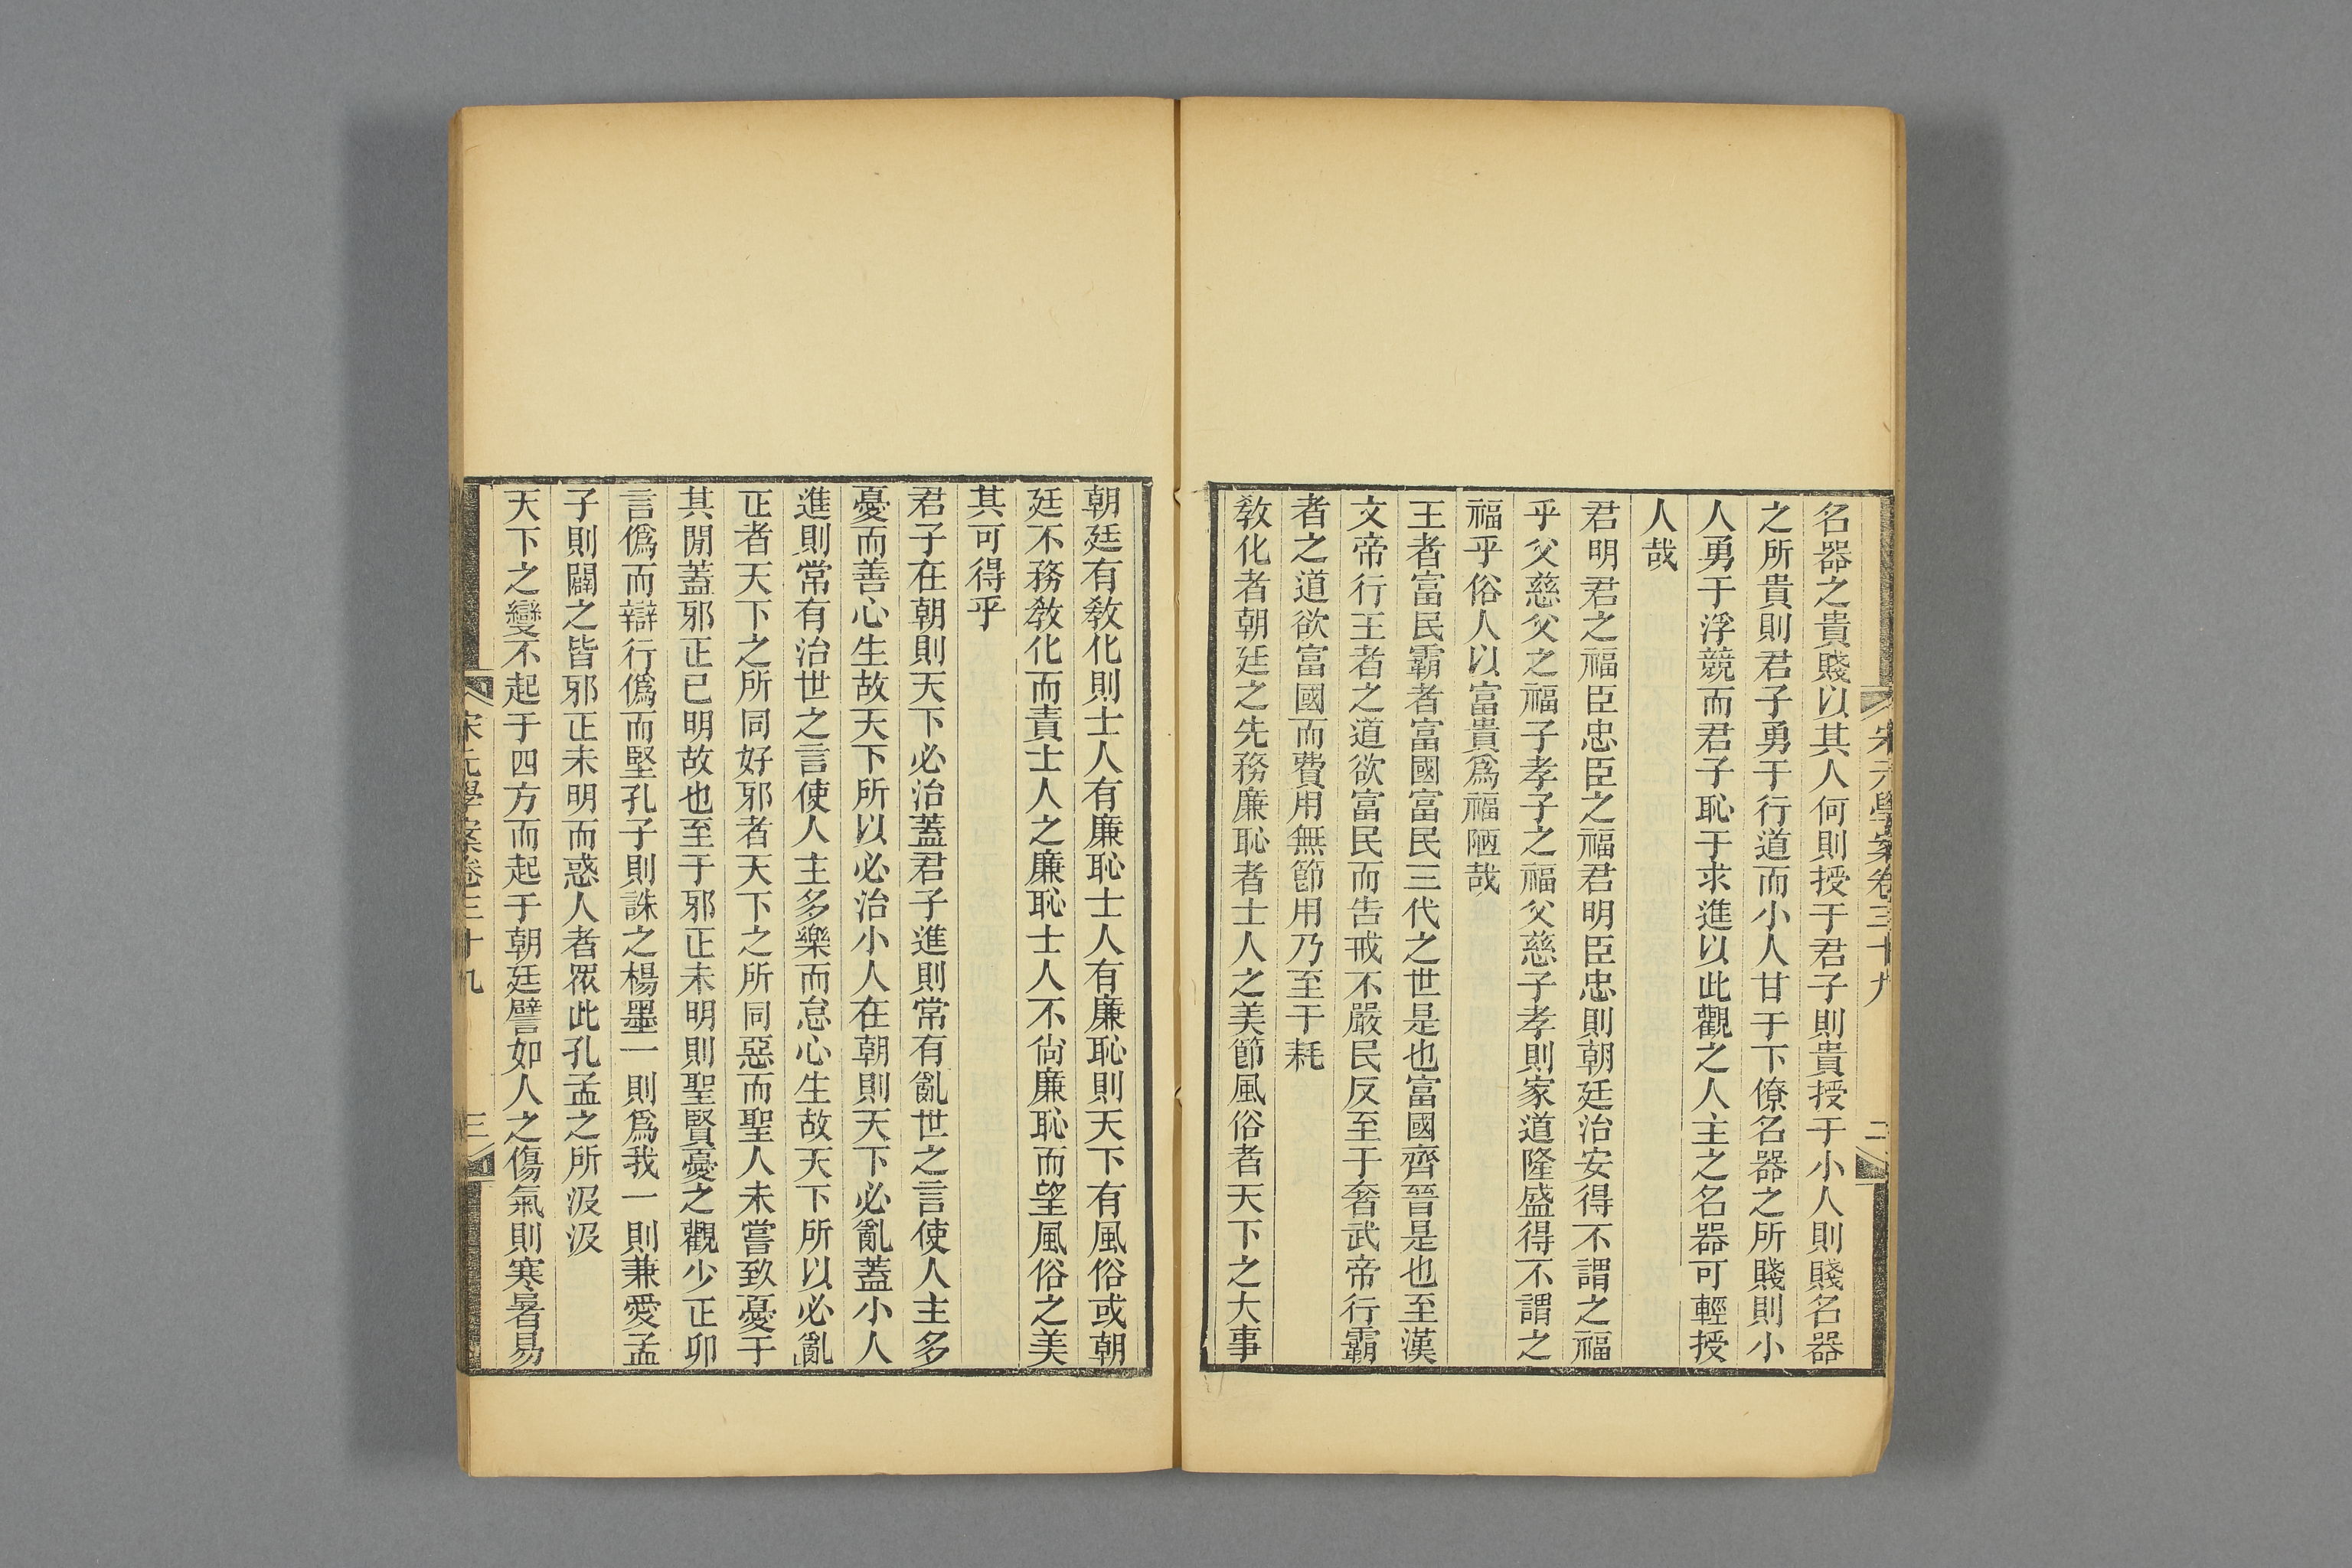 宋元學案卷三十九
二
名器之貴賤以其人何則授于君子則貴授于小人則賤名器
之所貴則君子勇于行道而小人甘于下僚名器之所賤則小
人勇于浮競而君子恥于求進以此觀之人主之名器可輕授
人哉
君明君之福臣忠臣之福君明臣忠則朝廷治安得不謂之福
乎父慈父之福子孝子之福父慈子孝則家道隆盛得不謂之
福乎俗人以富貴爲福陋哉
王者富民霸者富國富民三代之世是也富國齊晉是也至漢
文帝行王者之道欲富民而告戒不嚴民反至于奢武帝行霸
者之道欲富國而費用無節用乃至于耗
敎化者朝廷之先務廉恥者士人之美節風俗者天下之大事
朝廷有敎化則士人有廉恥士人有廉恥則天下有風俗或朝
廷不務敎化而責士人之廉恥士人不尙廉恥而望風俗之美
其可得乎
君子在朝則天下必治蓋君子進則常有亂世之言使人主多
憂而善心生故天下所以必治小人在朝則天下必亂蓋小人
進則常有治世之言使人主多樂而怠心生故天下所以必亂
正者天下之所同好邪者天下之所同惡而聖人未嘗致憂于
其閒蓋邪正已明故也至于邪正未明則聖賢憂之觀少正卯
言僞而辯行僞而堅孔子則誅之楊墨一則爲我一則兼愛孟
子則闢之皆邪正未明而惑人者眾此孔孟之所汲汲
天下之變不起于四方而起于朝廷譬如人之傷氣則寒暑易
宋元學案卷三十九
三